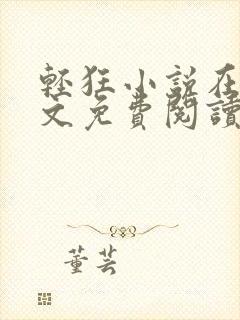 輕狂小說在
文免費閱讀
董芸